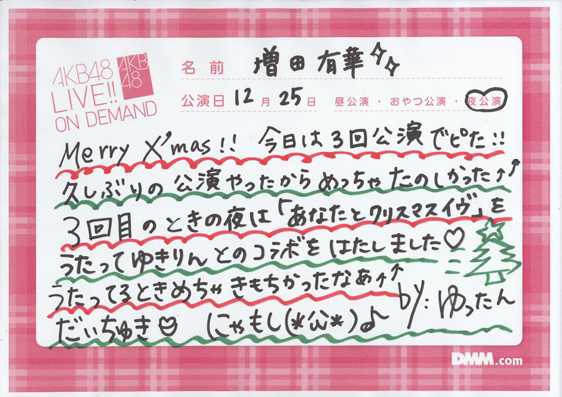 AKB48
LIVE!!
ON DEMAND
AKB
48
名前 増田有華
公演日 12月25日 昼公演・おやつ公演・夜公演
Merry X'mas!! 今日は3回公演でピた!!
久しぶりの公演やったからめっちゃたのしかった↑↑
3回目のときの夜は「あなたとクリスマスイヴ」を
うたってゆきりんとのコラボをはたしました♡
うたってるときめちゃきもちかったなあ↑↑
by:ゆったん
だいちゅき♡ にゃもし(*'ω'*)♪
DMM.com